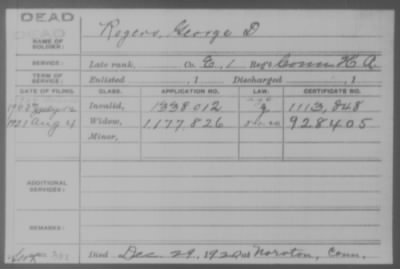 DEAD
DEAD
NAME OF SOLDIER: Rogers, George D
SERVICE: Late rank, Co. E, 1 Reg't Conn H. A.
TERM OF SERVICE: Enlisted , 1 Discharged , 1
DATE OF FILING. CLASS. APPLICATION NO. LAW. CERTIFICATE NO.
Invalid, 1338012 1113,848
1921 Aug 4 Widow, 1177,826 928405
Minor,
ADDITIONAL SERVICES:
REMARKS:
Died Dec. 29, 1920 at Noroton, Conn.